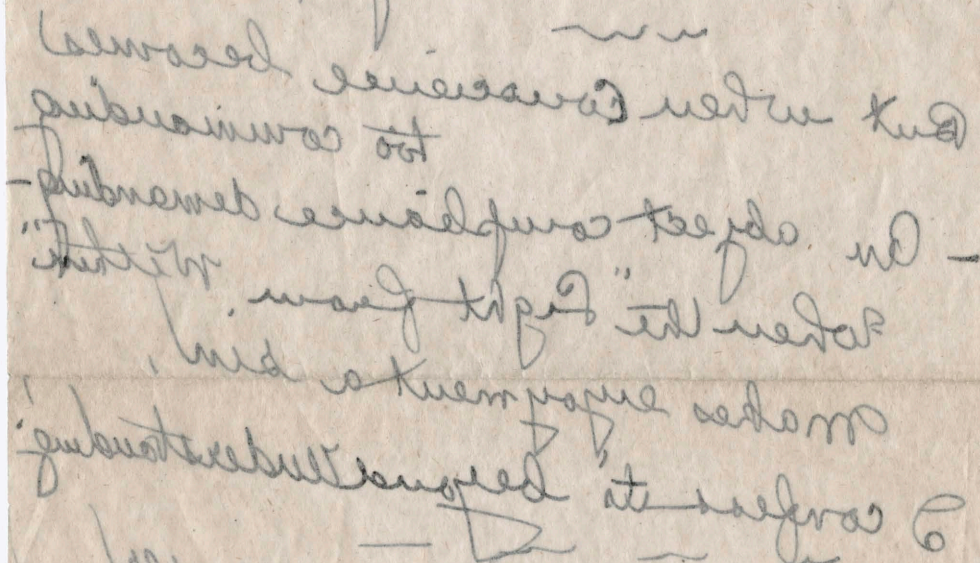 But when Conscience becomes
too commanding
- An abject compliance demanding -
When the "Light from Within"
Makes enjoyment a sin,
I confess it's beyond understanding!